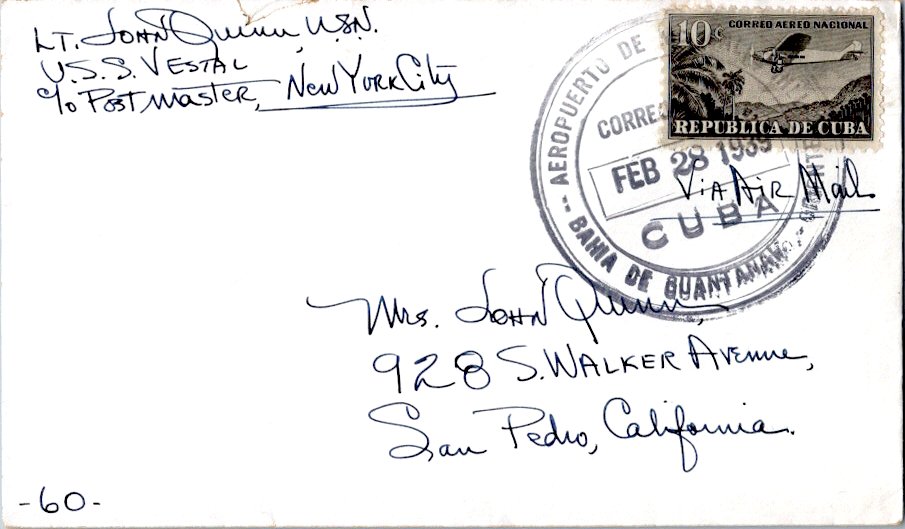 Lt. John Quinn, USN.
U.S.S. Vestal
c/o Postmaster, New York City
10c
CORREO AEREO NACIONAL
REPUBLICA DE CUBA
AEROPUERTO DE
CORREO
FEB 28 1939
CUBA
BAHIA DE GUANTANAMO
Via Air Mail
Mrs. John Quinn,
928 S. Walker Avenue,
San Pedro, California.
-60-